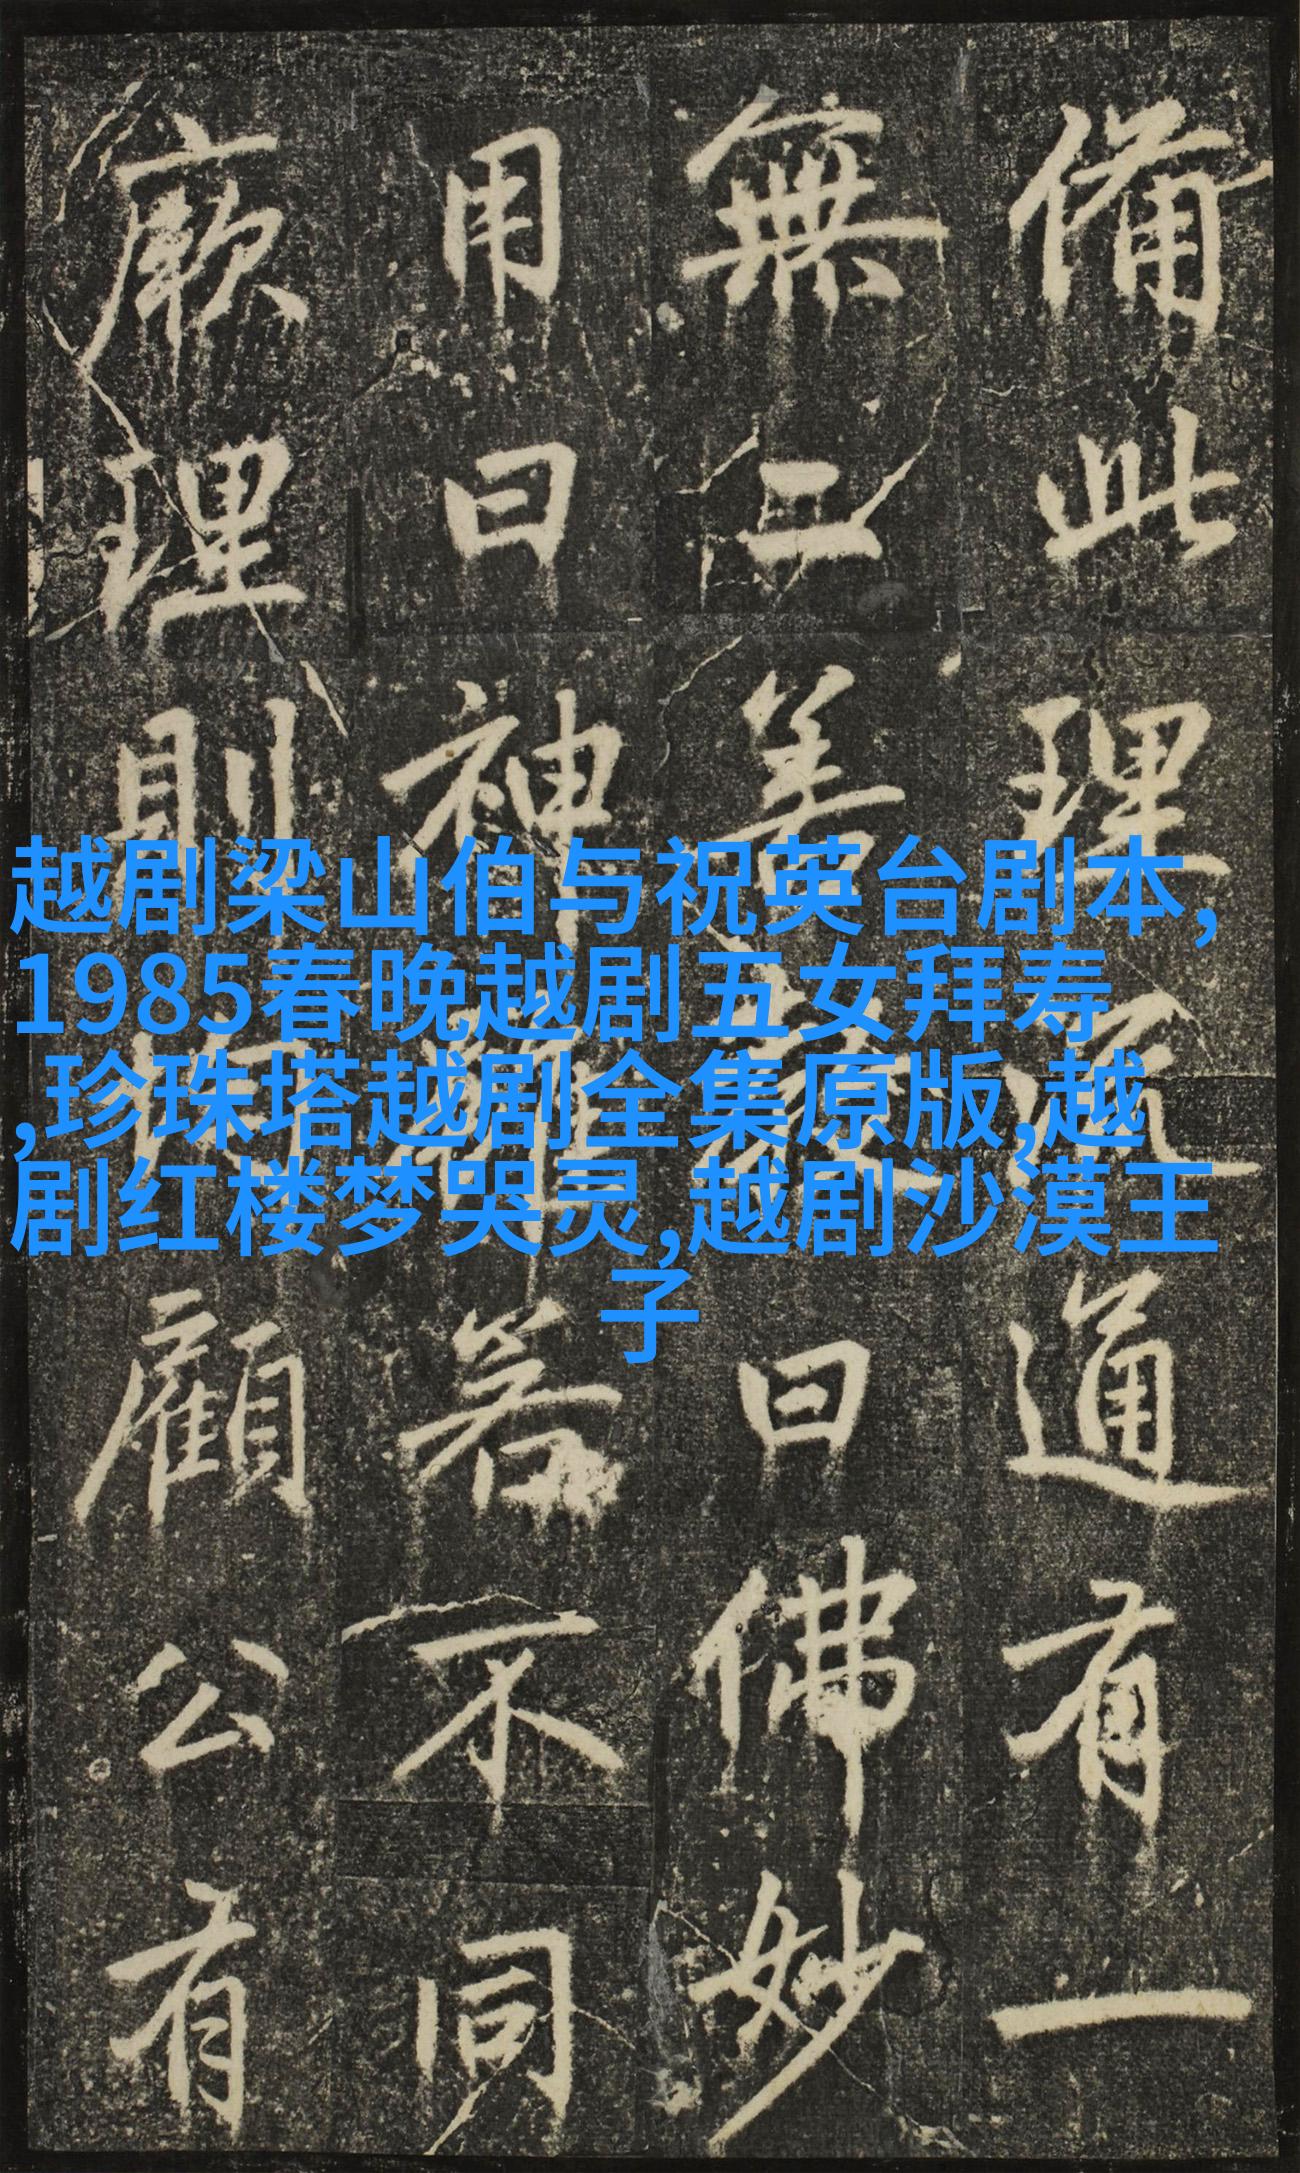 備此理通有一
無二善曰佛妙
用曰神雖若不同
厥理則均顧公有
越剧梁山伯与祝英台剧本,
1985春晚越剧五女拜寿
,珍珠塔越剧全集原版,越
剧红楼梦哭灵,越剧沙漠王
子